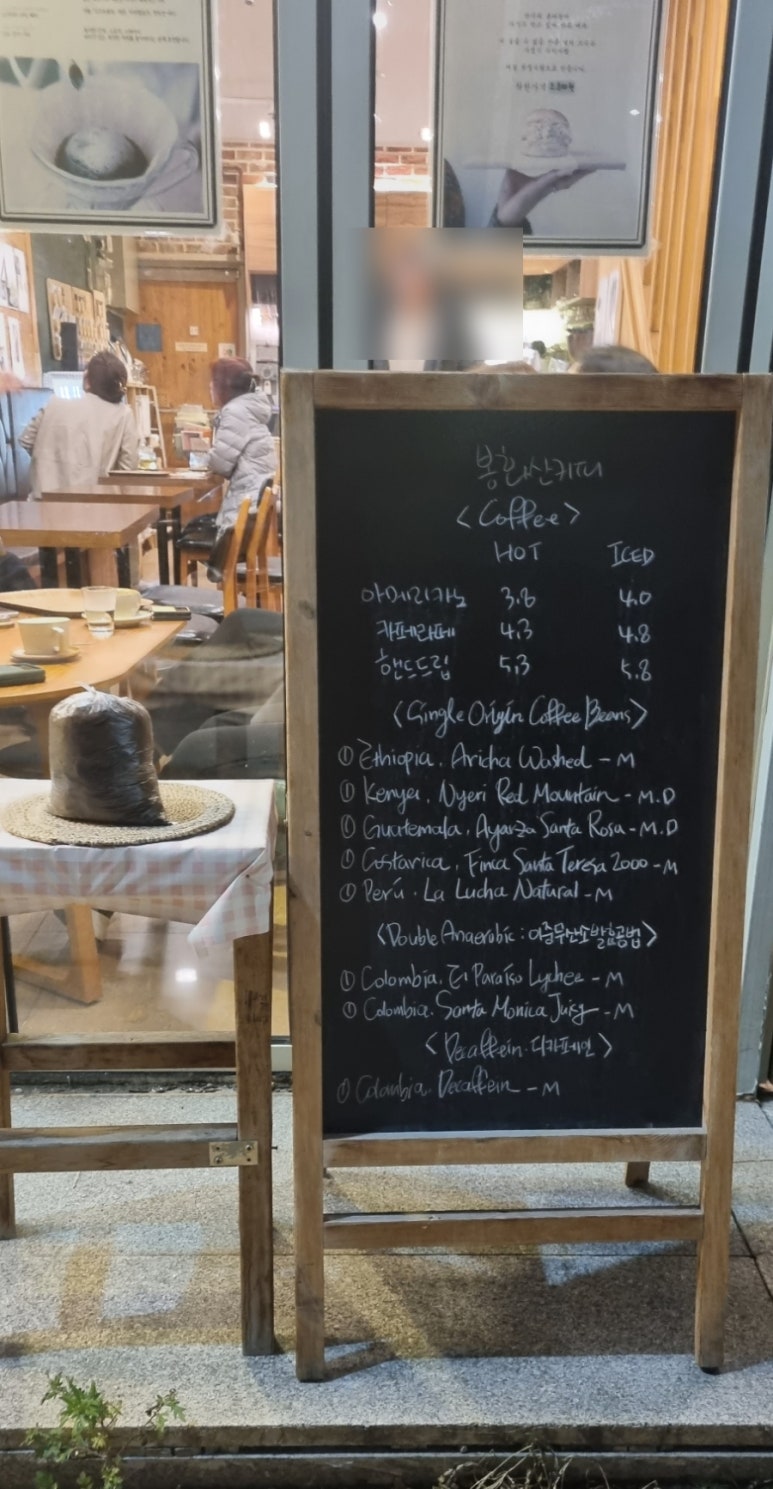 봉화산커피
<Coffee>
HOT ICED
아메리카노 3.8 4.0
카페라떼 4.3 4.8
핸드드립 5.3 5.8
<Single Origin Coffee Beans>
① Ethiopia. Aricha Washed - M
① Kenya. Nyeri Red Mountain - M.D
① Guatemala. Ayarza Santa Rosa - M.D
① Costarica. Finca Santa Teresa 2000 - M
① Perú. La Lucha Natural - M
<Double Anaerobic : 이중무산소발효공법>
① Colombia. El Paraiso Lychee - M
① Colombia. Santa Monica - M
<Decaffein. 디카페인>
① Colombia. Decaffein - M